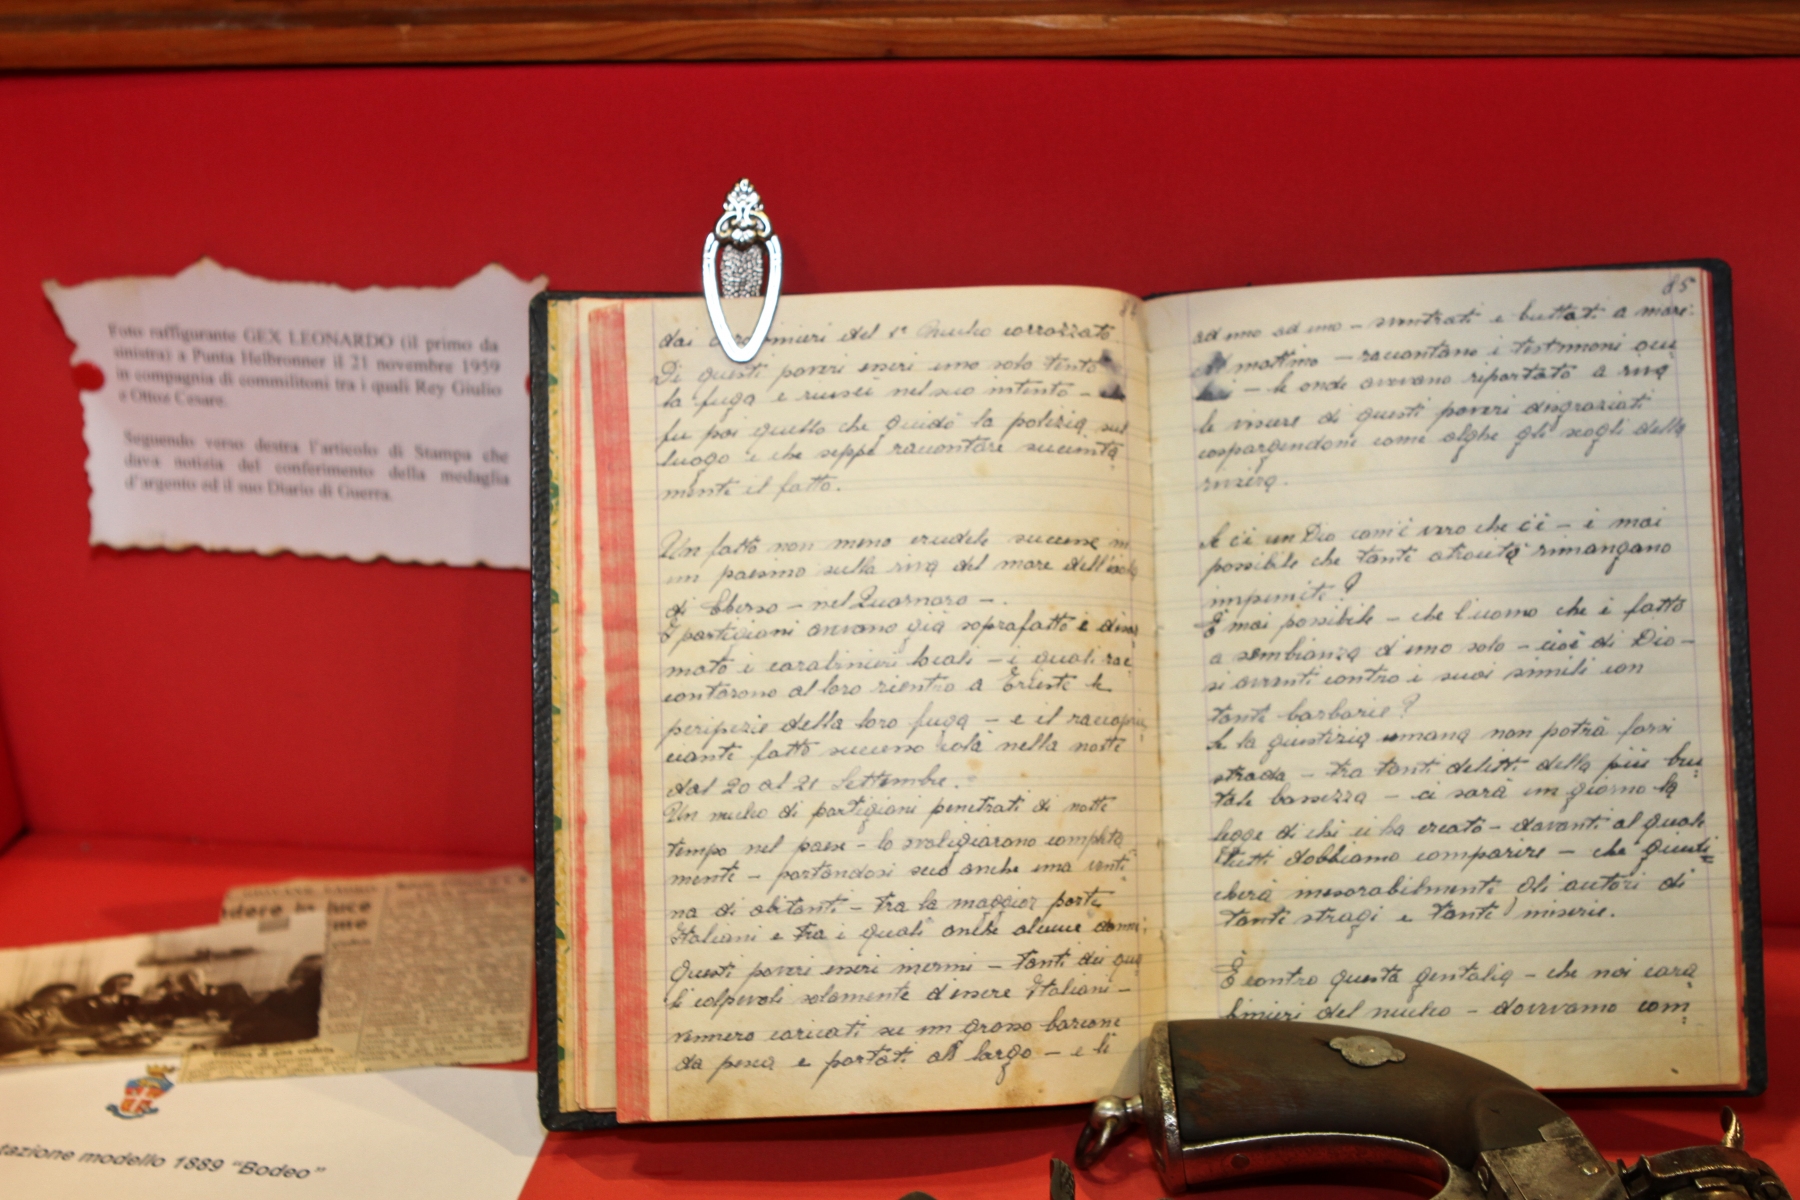 Foto raffigurante GEX LEONARDO (il primo da
sinistra) a Punta Helbronner il 21 novembre 1959
in compagnia di commilitoni tra i quali Rey Giulio
e Ottoz Cesare.
Seguendo verso destra l'articolo di Stampa che
dava notizia del conferimento della medaglia
d'argento ed il suo Diario di Guerra.
dere in luce
me
tazione modello 1889 "Bodeo"
dai del 1° Nucleo corrazzato
Di questi poveri esseri uno solo tentò
la fuga e riuscì nel suo intento -
fu poi quello che guidò la polizia sul
luogo e che seppe raccontare succinta
mente il fatto.
Un fatto non meno crudele successe in
un paesino sulla riva del mare dell'isola
di Cherso - nel Quarnaro -.
I partigiani avevano già soprafatto e disar
mato i carabinieri locali - i quali rac
contarono al loro rientro a Trieste le
peripezie della loro fuga - e il raccapric
ciante fatto successo colà nella notte
dal 20 al 21 Settembre.
Un nucleo di partigiani penetrati di notte
tempo nel paese - lo svaligiarono completa
mente - portandosi seco anche una venti
na di abitanti - tra la maggior parte
Italiani e tra i quali anche alcune donne.
Questi poveri esseri inermi - tanti dei qua
li colpevoli solamente d'essere Italiani -
vennero caricati su un grosso barcone
da pesca e portati al largo - e lì
85
ad uno ad uno - sventrati e buttati a mare.
Al mattino - raccontano i testimoni ocu
lari - le onde avevano riportato a riva
le viscere di questi poveri disgraziati
cospargendone come alghe gli scogli della
riviera.
Se c'è un Dio com'è vero che c'è - è mai
possibile che tante atrocità rimangano
impunite?
È mai possibile - che l'uomo che è fatto
a sembianza d'uno solo - cioè di Dio -
si avventi contro i suoi simili con
tante barbarie?
Se la giustizia umana non potrà farsi
strada - tra tanti delitti della più bru
tale bassezza - ci sarà un giorno la
legge di chi ci ha creato - davanti al quale
tutti dobbiamo comparire - che giusti
cherà inesorabilmente gli autori di
tante stragi e tante miserie.
È contro questa gentalia - che noi cara
binieri del nucleo - dovevamo com